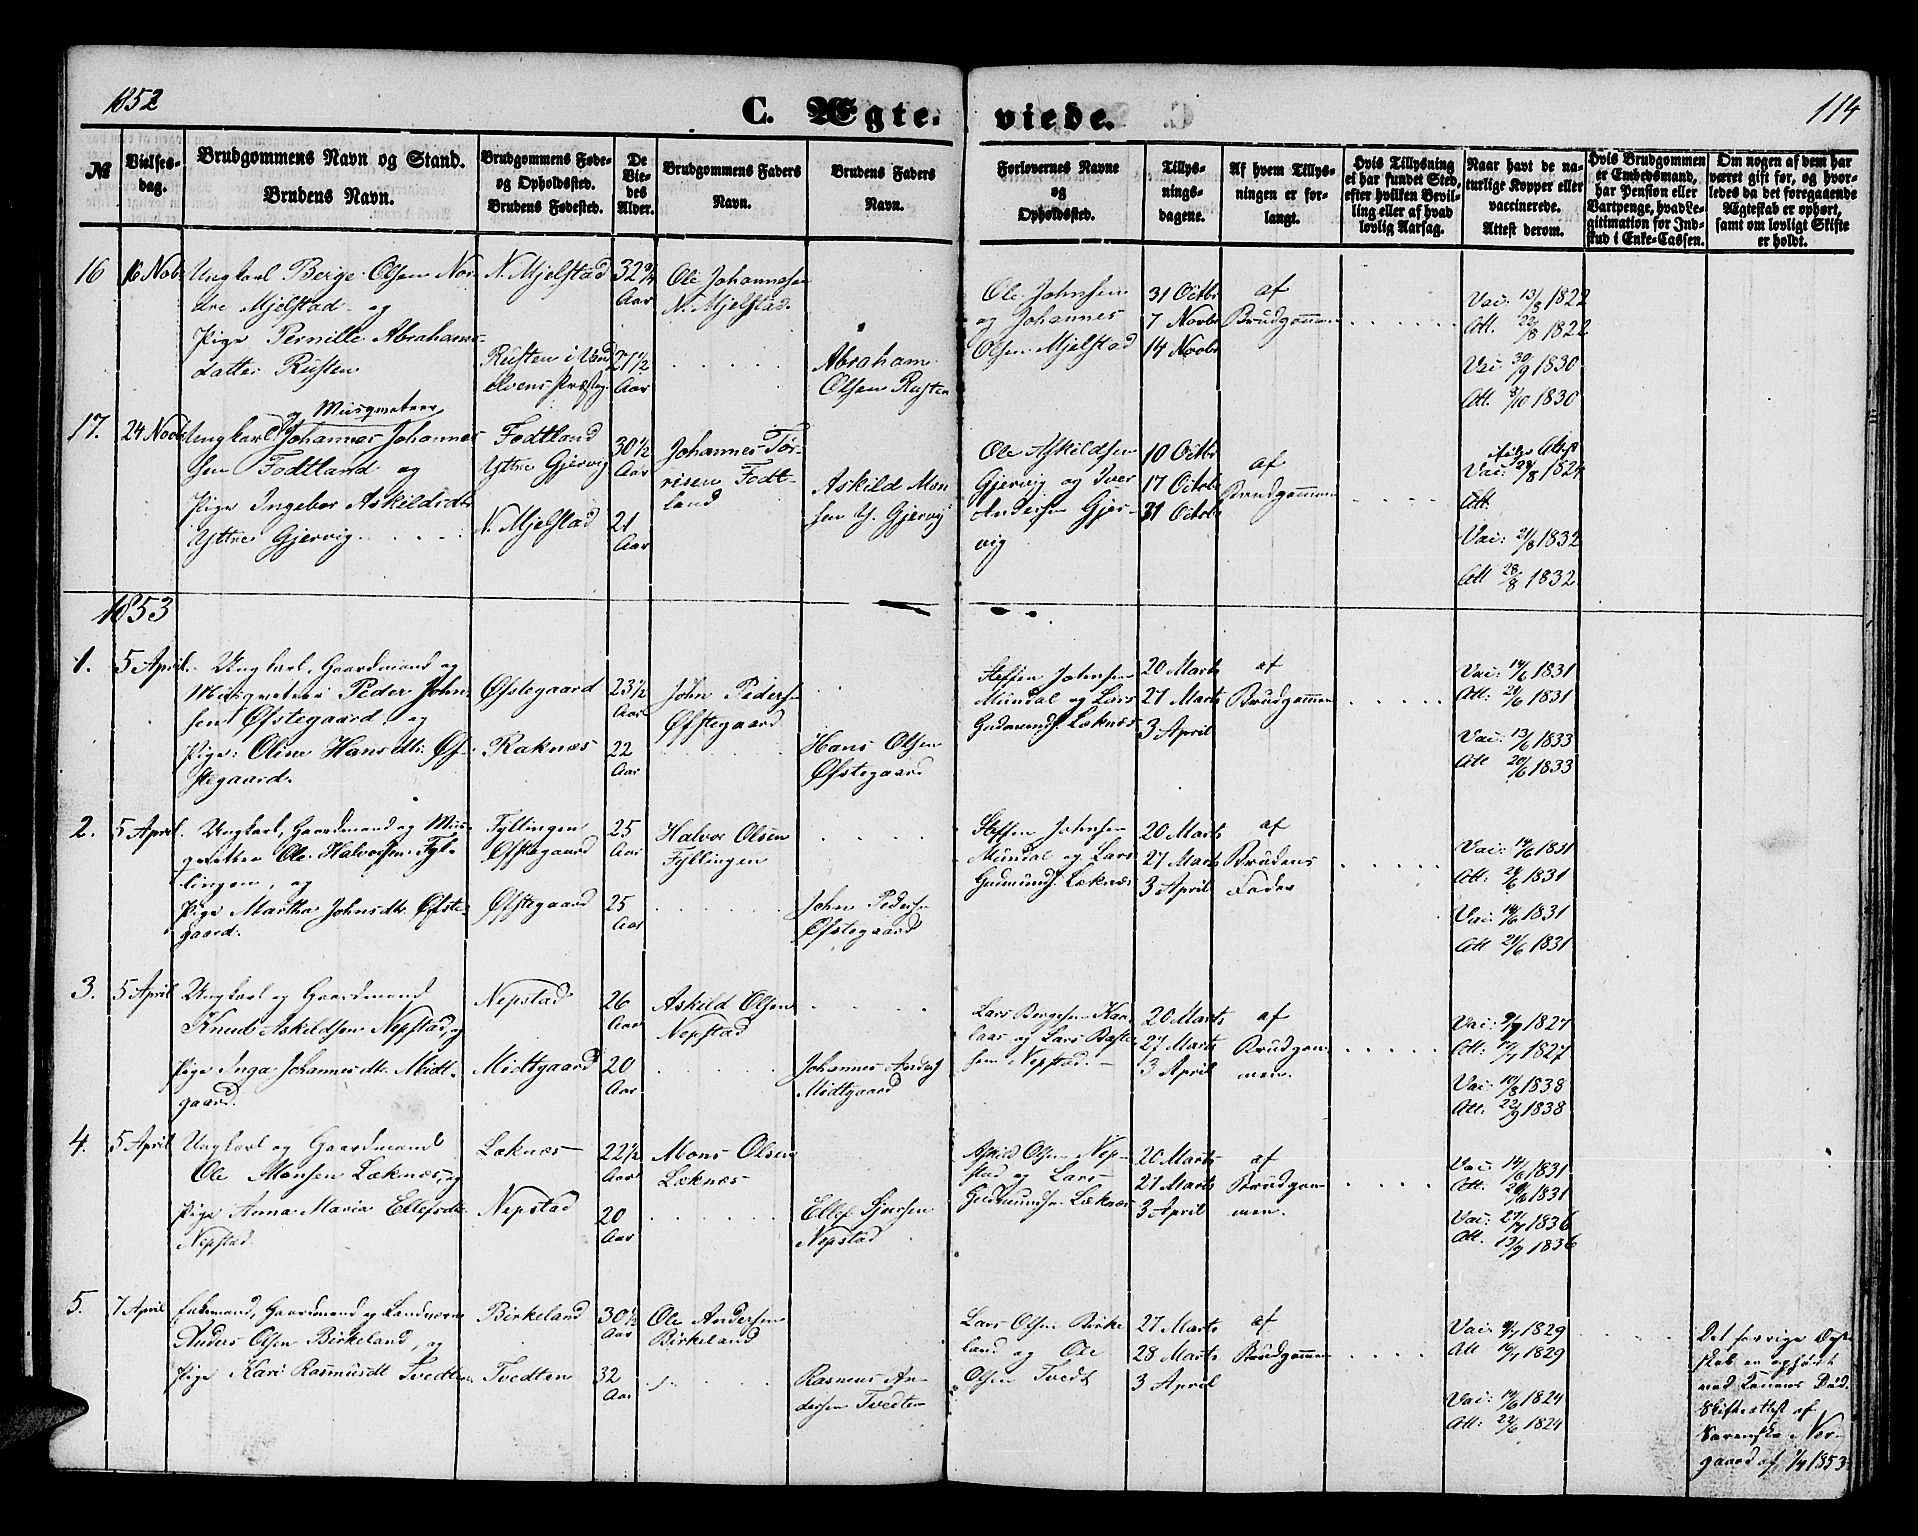 1852
C. Ægte- viede.
114
№
Vielses-
dag.
Brudgommens Navn og Stand.
Brudens Navn.
Brudgommens Føde-
og Opholdssted.
Brudens Fødested.
De
Vie-
des
Alder.
Brudgommens Faders
Navn.
Brudens Faders
Navn.
Forlovernes Navne
og
Opholdssted.
Tillys-
nings-
dagene.
Af hvem Tillys-
ningen er for-
langt.
Hvis Tillysning
ei har fundet Sted,
efter hvilken Bevil-
ling eller af hvad
lovlig Aarsag.
Naar havt de na-
turlige Kopper eller
vaccinerede.
Attest derom.
Hvis Brudgommen
er Embedsmand,
har Pension eller
Vartpenge, hvad Le-
gitimation for Ind-
skud i Enke-Cassen.
Om nogen af dem har
været gift før, og hvor-
ledes da det foregaaende
Ægteskab er ophørt,
samt om lovligt Skifte
er holdt.
16
16 Novb
Ungkarl Berge Olsen Nor
dre Mjelstad og
Pige Pernille Abrahams-
datter Rusten
N. Mjelstad
Rusten i Vand
elvens Præsteg.
32 3/4
Aar
21 1/2
Aar
Ole Johannesen
N. Mjelstad.
Abraham
Olsen Rusten
Ole Johnsen
og Johannes
Olsen Mjelstad
31 Octbr
7 Novbr
14 Novbr
af
Brudgommen
Vac. 13/8 1822
Att. 22/8 1822
Vac 30/9 1830
Att. 8/10 1830
17.
24 Novb
og Musqueteer
Ungkarl Johannes Johannes-
sen Fodtland og
Pige Ingebor Askildsdtr
Yttre Gjervig
Fodtland
Yttre Gjervig
N. Mjelstad
30 1/2
Aar
21
Aar
Johannes Tor-
risen Fodt-
land
Askild Mon-
sen Y. Gjervig
Ole Askildsen
Gjervig og Iver
Andersen Gjer-
vig
10 Octbr
17 Octob
31 Octob
af
Brudgommen
Vac: 24/8 1824
Att.
Vac: 21/8 1832
Att 28/8 1832
1853
1.
5 April.
Ungkarl, Gaardmand og
Musqueteer Peder John-
sen Øfstegaard, og
Pige: Oline Hansdtr: Øf-
stegaard.
Øfstegaard
Raknæs
23 1/2
Aar
22
Aar
John Peders:
Øfstegaard
Hans Olsen
Øfstegaard
Steffen Johnsen
Mundal og Lars
Gudmunds. Læknæs
20 Marts
27 Marts
3 April
af
Brudgommen
Vac: 14/6 1831
Att: 21/6 1831
Vac: 13/6 1833
Att 20/6 1833
2.
5 April.
Ungkarl, Gaardmand og Mus-
queteer Ole Halvorsen Fyl-
lingen, og
Pige Martha Johnsdtr. Øfste-
gaard.
Fyllingen
Øfstegaard
Øfstegaard
25
Aar
25
Aar
Halvor Olsen
Fyllingen
John Peders:
Øfstegaard
Steffen Johnsen
Mundal og Lars
Gudmunds. Læknæs
20 Marts
27 Marts
3 April
af
Brudens
Fader
Vac: 14/6 1831
Att: 21/6 1831
Vac: 14/6 1831
Att 21/6 1831
3.
5 April
Ungkarl og Gaardmand
Knud Askildsen Nepstad, og
Pige Inga Johannesdtr. Midt-
gaard.
Nepstad
Midtgaard
26
Aar
20
Aar
Askild Olsen
Nepstad
Johannes Anders:
Midtgaard
Lars Bergesen Kaa-
laas og Lars
sen Nepstad.
20 Marts
27 Marts
3 April
af
Brudgom-
men.
Vac: 9/7 1827
Att: 17/7 1827
Vac: 10/8 1838
Att: 22/9 1838
4.
5 April
Ungkarl og Gaardmand
Ole Monsen Læknæs, og
Pige Anna Maria Ellefsdtr.
Nepstad.
Læknæs
Nepstad
22 1/2
Aar
20
Aar
Mons Olsen
Læknæs
Ellef Sjursen
Nepstad
Askild Olsen Nep-
stad og Lars
Gudmundsen Læknæs
20 Marts
27 Marts
3 April
af
Brudgom-
men.
Vac: 14/6 1831
Att. 20/6 1831
Vac: 27/7 1836
Att. 13/9 1836
5.
7 April
Enkemand, Gaardmand og Landværn
Anders Olsen Birkeland, og
Pige Kari Rasmusdt Tvedten
Birkeland
Tvedten
30 1/2
Aar
32
Aar
Ole Andersen
Birkeland
Rasmus An-
dersen Tvedten
Lars Olsen Birke
land og Ole
Olsen Tvedt
27 Marts
28 Marts
3 April
af
Brudgommen
Vac: 9/7 1829
Att 10/7 1829
Vac: 14/6 1824
Att: 22/6 1824
Det forrige Ægte-
skab er ophørt
ved Konens Død.
Skifteattest af
Sorenskr. Nor-
gaard af 1/4 1853